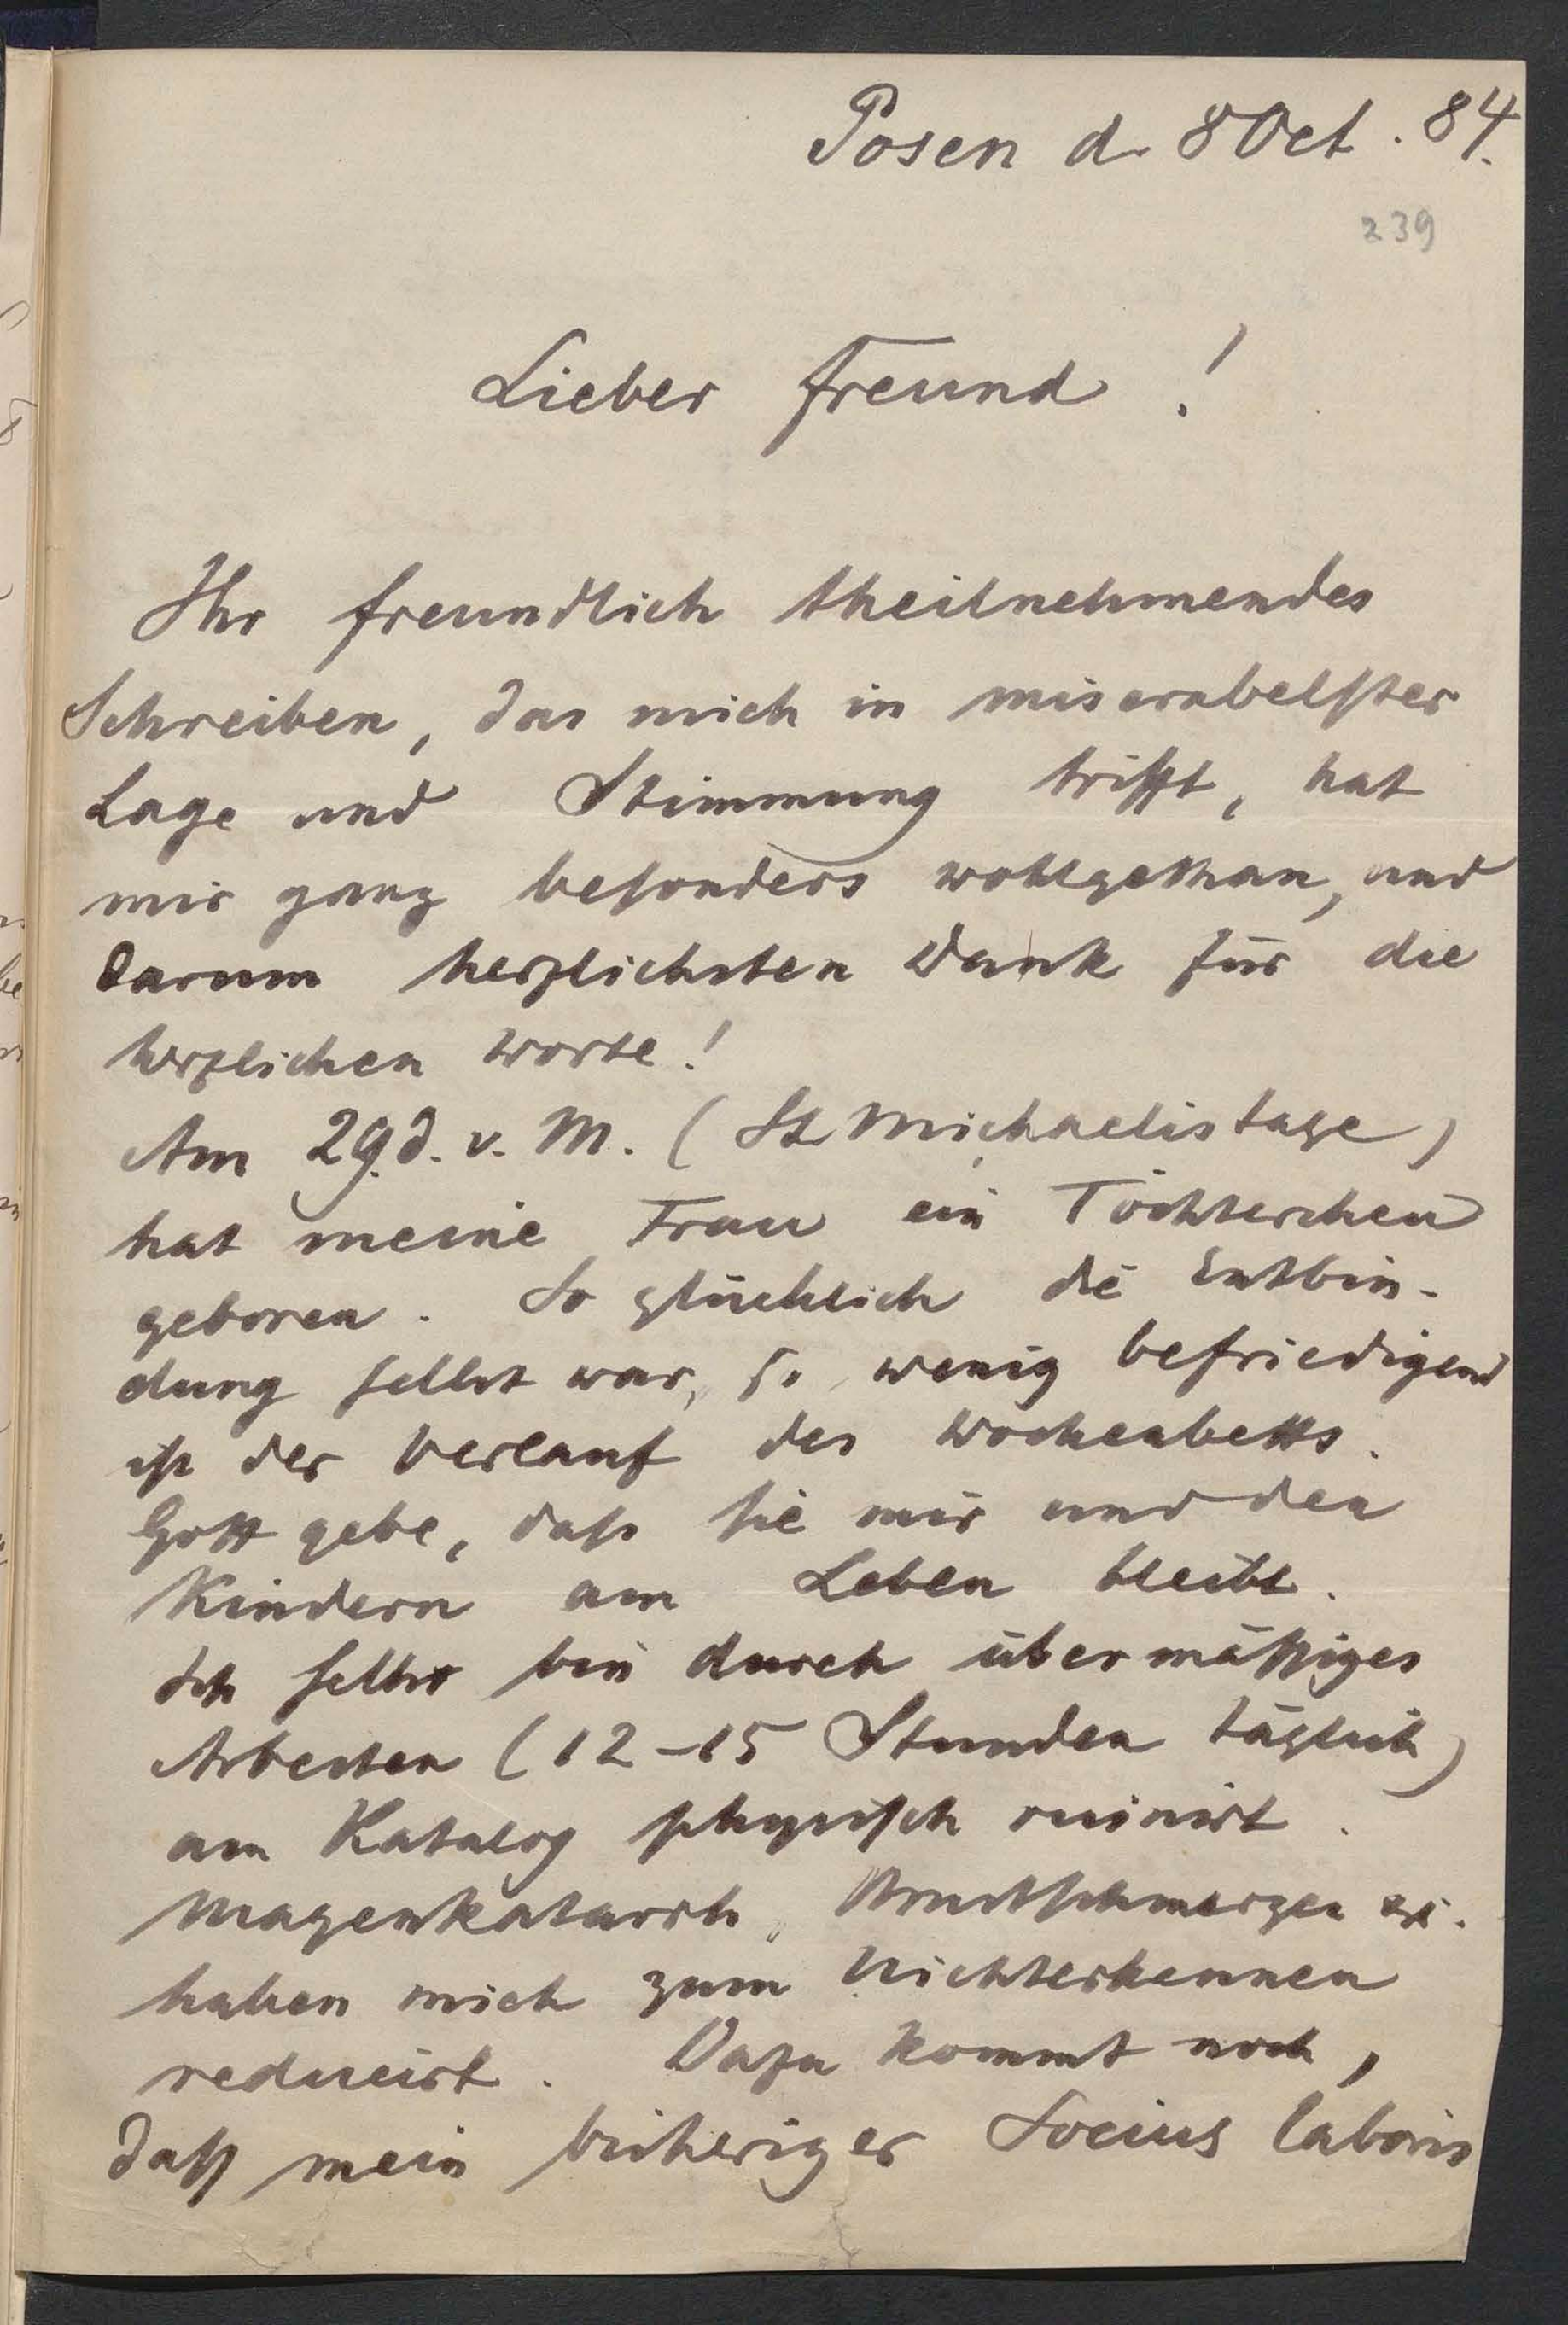 Posen d. 8 Oct. 84.
239
Lieber Freund!
Ihr freundlich theilnehmendes
Schreiben, das mich in miserabelster
Lage und Stimmung trifft, hat
mir ganz besonders wohlgethan, und
darum herzlichsten Dank für die
herzlichen Worte!
Am 29. d. v. M. (St Michaelistage)
hat meine Frau ein Töchterchen
geboren. So glücklich die Entbin-
dung selbst war, so wenig befriedigend
ist der Verlauf des Wochenbetts.
Gott gebe, daß sie mir und den
Kindern am Leben bleibt.
Ich selbst bin durch übermäßiges
Arbeiten (12–15 Stunden täglich)
am Katalog physisch ruinirt.
Magenkatarrh, Brustschmerzen etc.
haben mich zum Nichterkennen
reducirt. Dazu kommt noch,
daß mein bisheriger Socius laboris